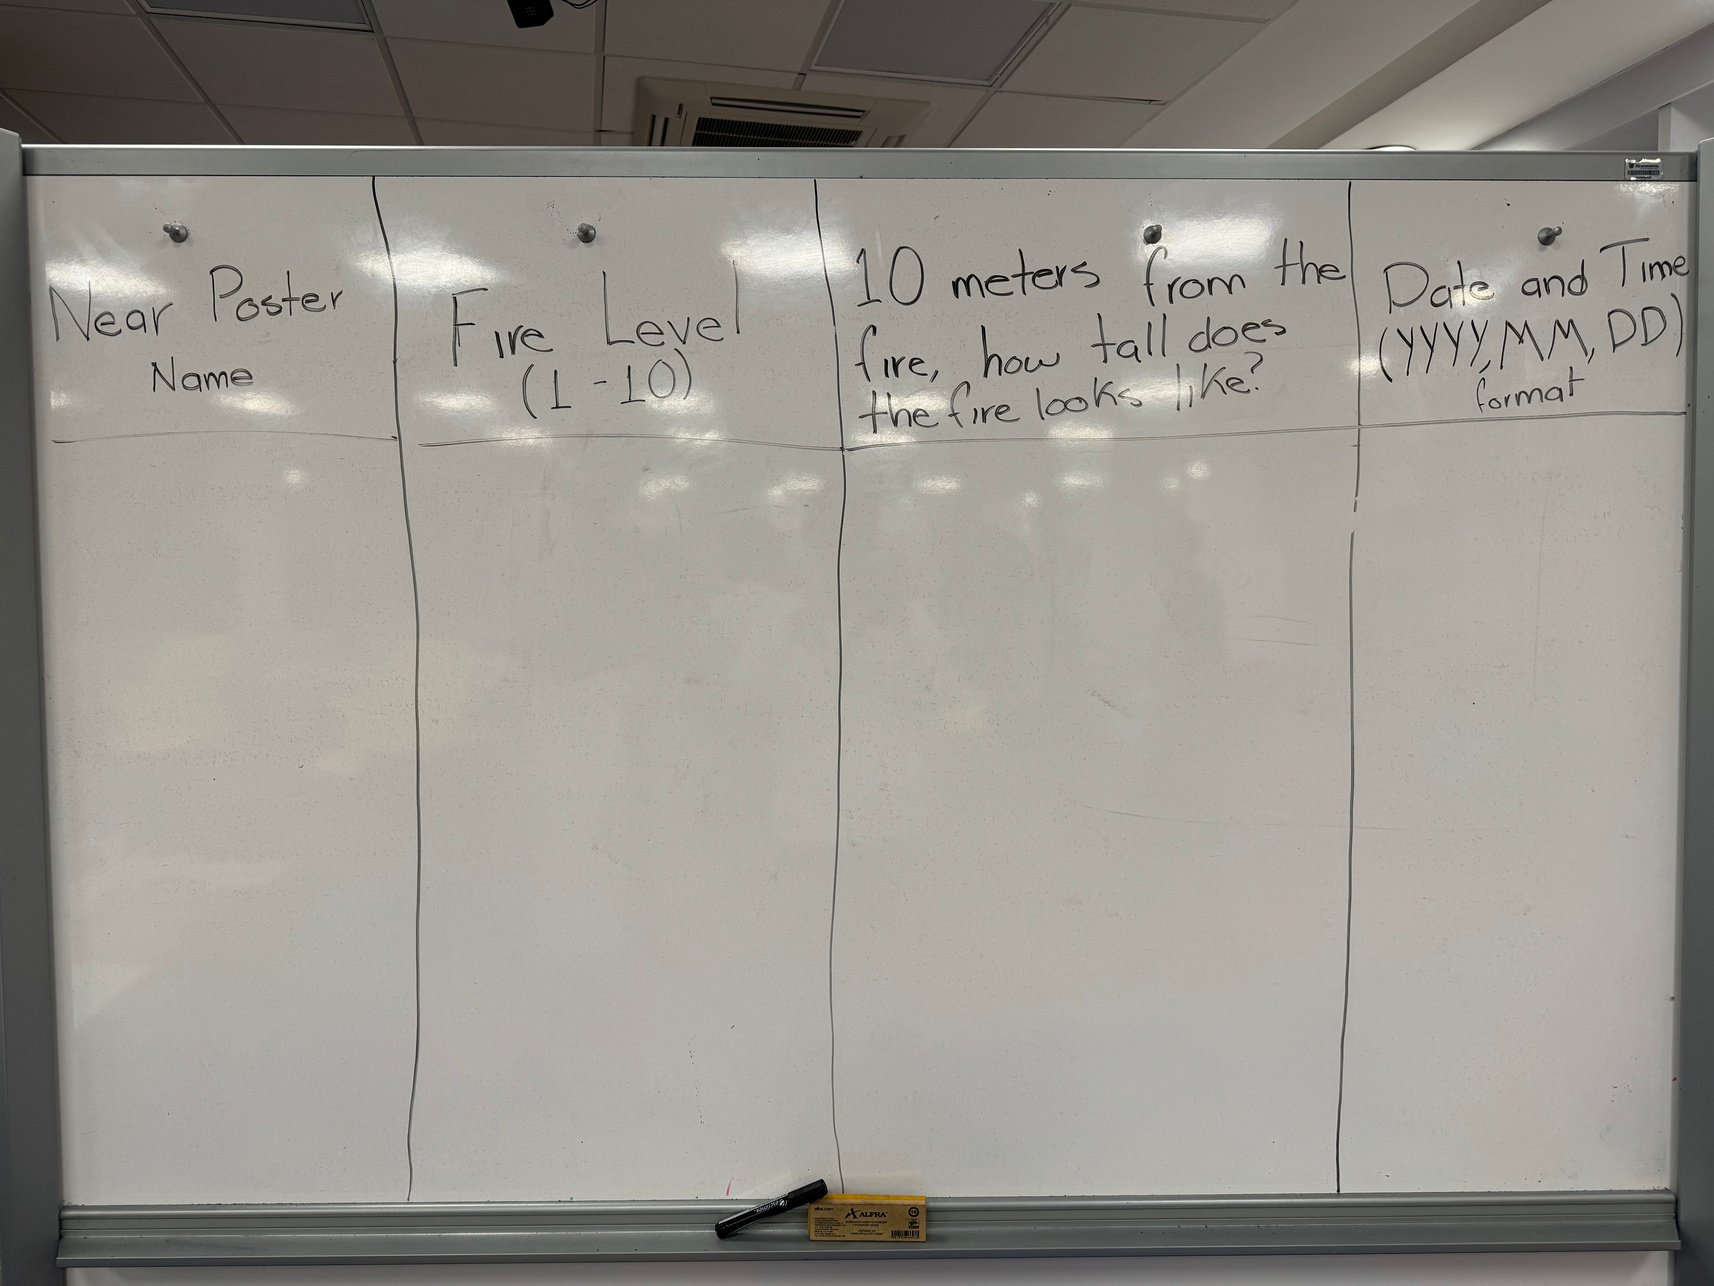 Near Poster
Name
Fire Level
(1-10)
10 meters from the
fire, how tall does
the fire looks like?
Date and Time
(YYYY,MM,DD)
format
ALFRA